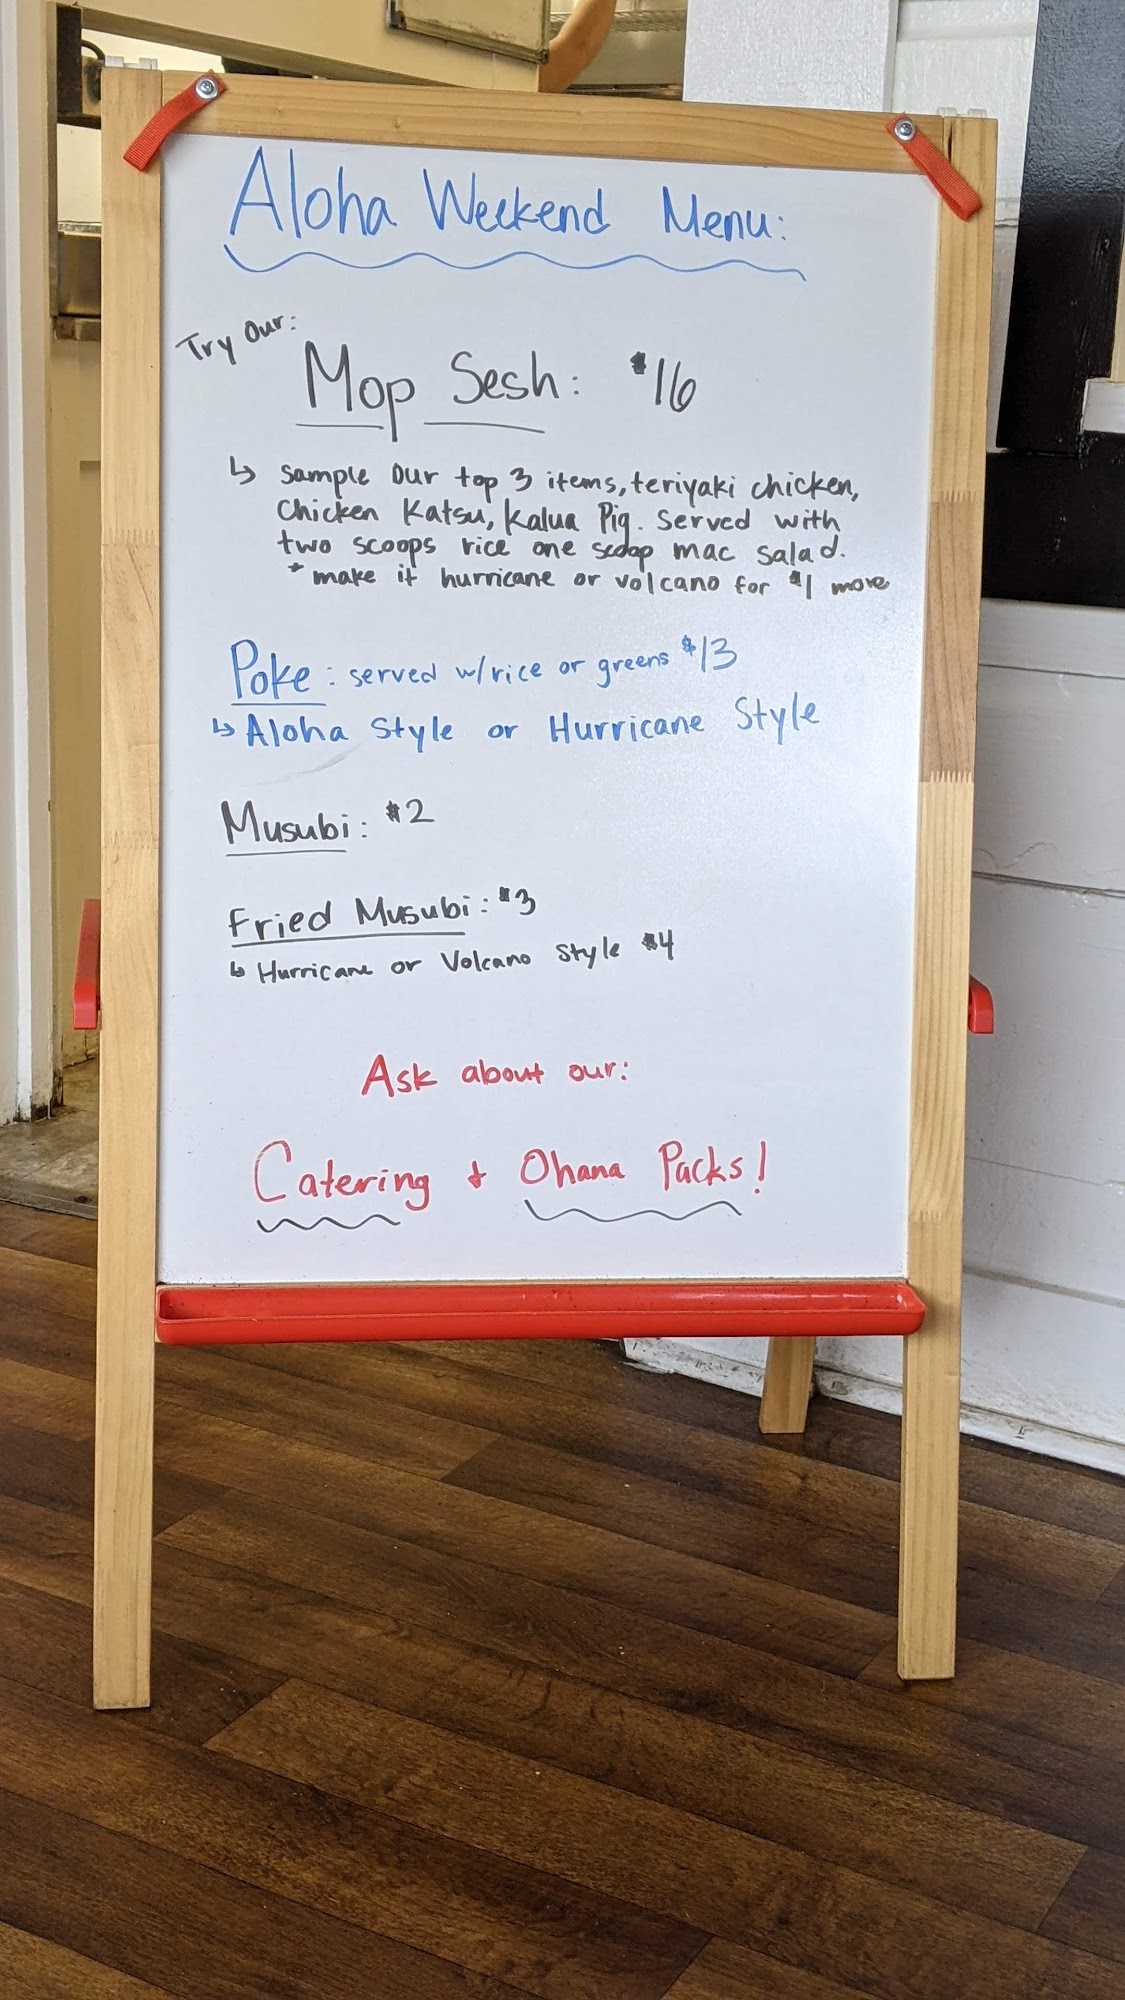 Aloha Weekend Menu:
Try Our:
Mop Sesh: $16
↳ Sample Our top 3 items, teriyaki chicken,
Chicken Katsu, Kalua Pig. Served with
two scoops rice one scoop mac salad.
* make it hurricane or volcano for $1 more
Poke: served w/rice or greens $13
↳ Aloha Style or Hurricane Style
Musubi: $2
Fried Musubi: $3
↳ Hurricane or Volcano Style $4
Ask about our:
Catering + Ohana Packs!